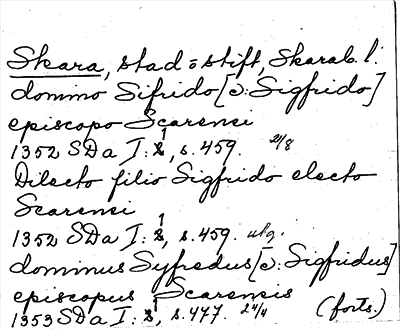 Skara, stad o stift, Skarab. l.
domino Sifrido [ɔ: Sigfrido]
episcopo Scarensi
1352 SDa I:1, s. 459. 21/8
Dilecto filio Sigfrido electo
Scarensi
1352 SDa I:1, s. 459. utg.
dominus Syfredus [ɔ: Sigfridus]
episcopus Scarensis
1353 SDa I:1, s. 477. 24/4 (forts.)